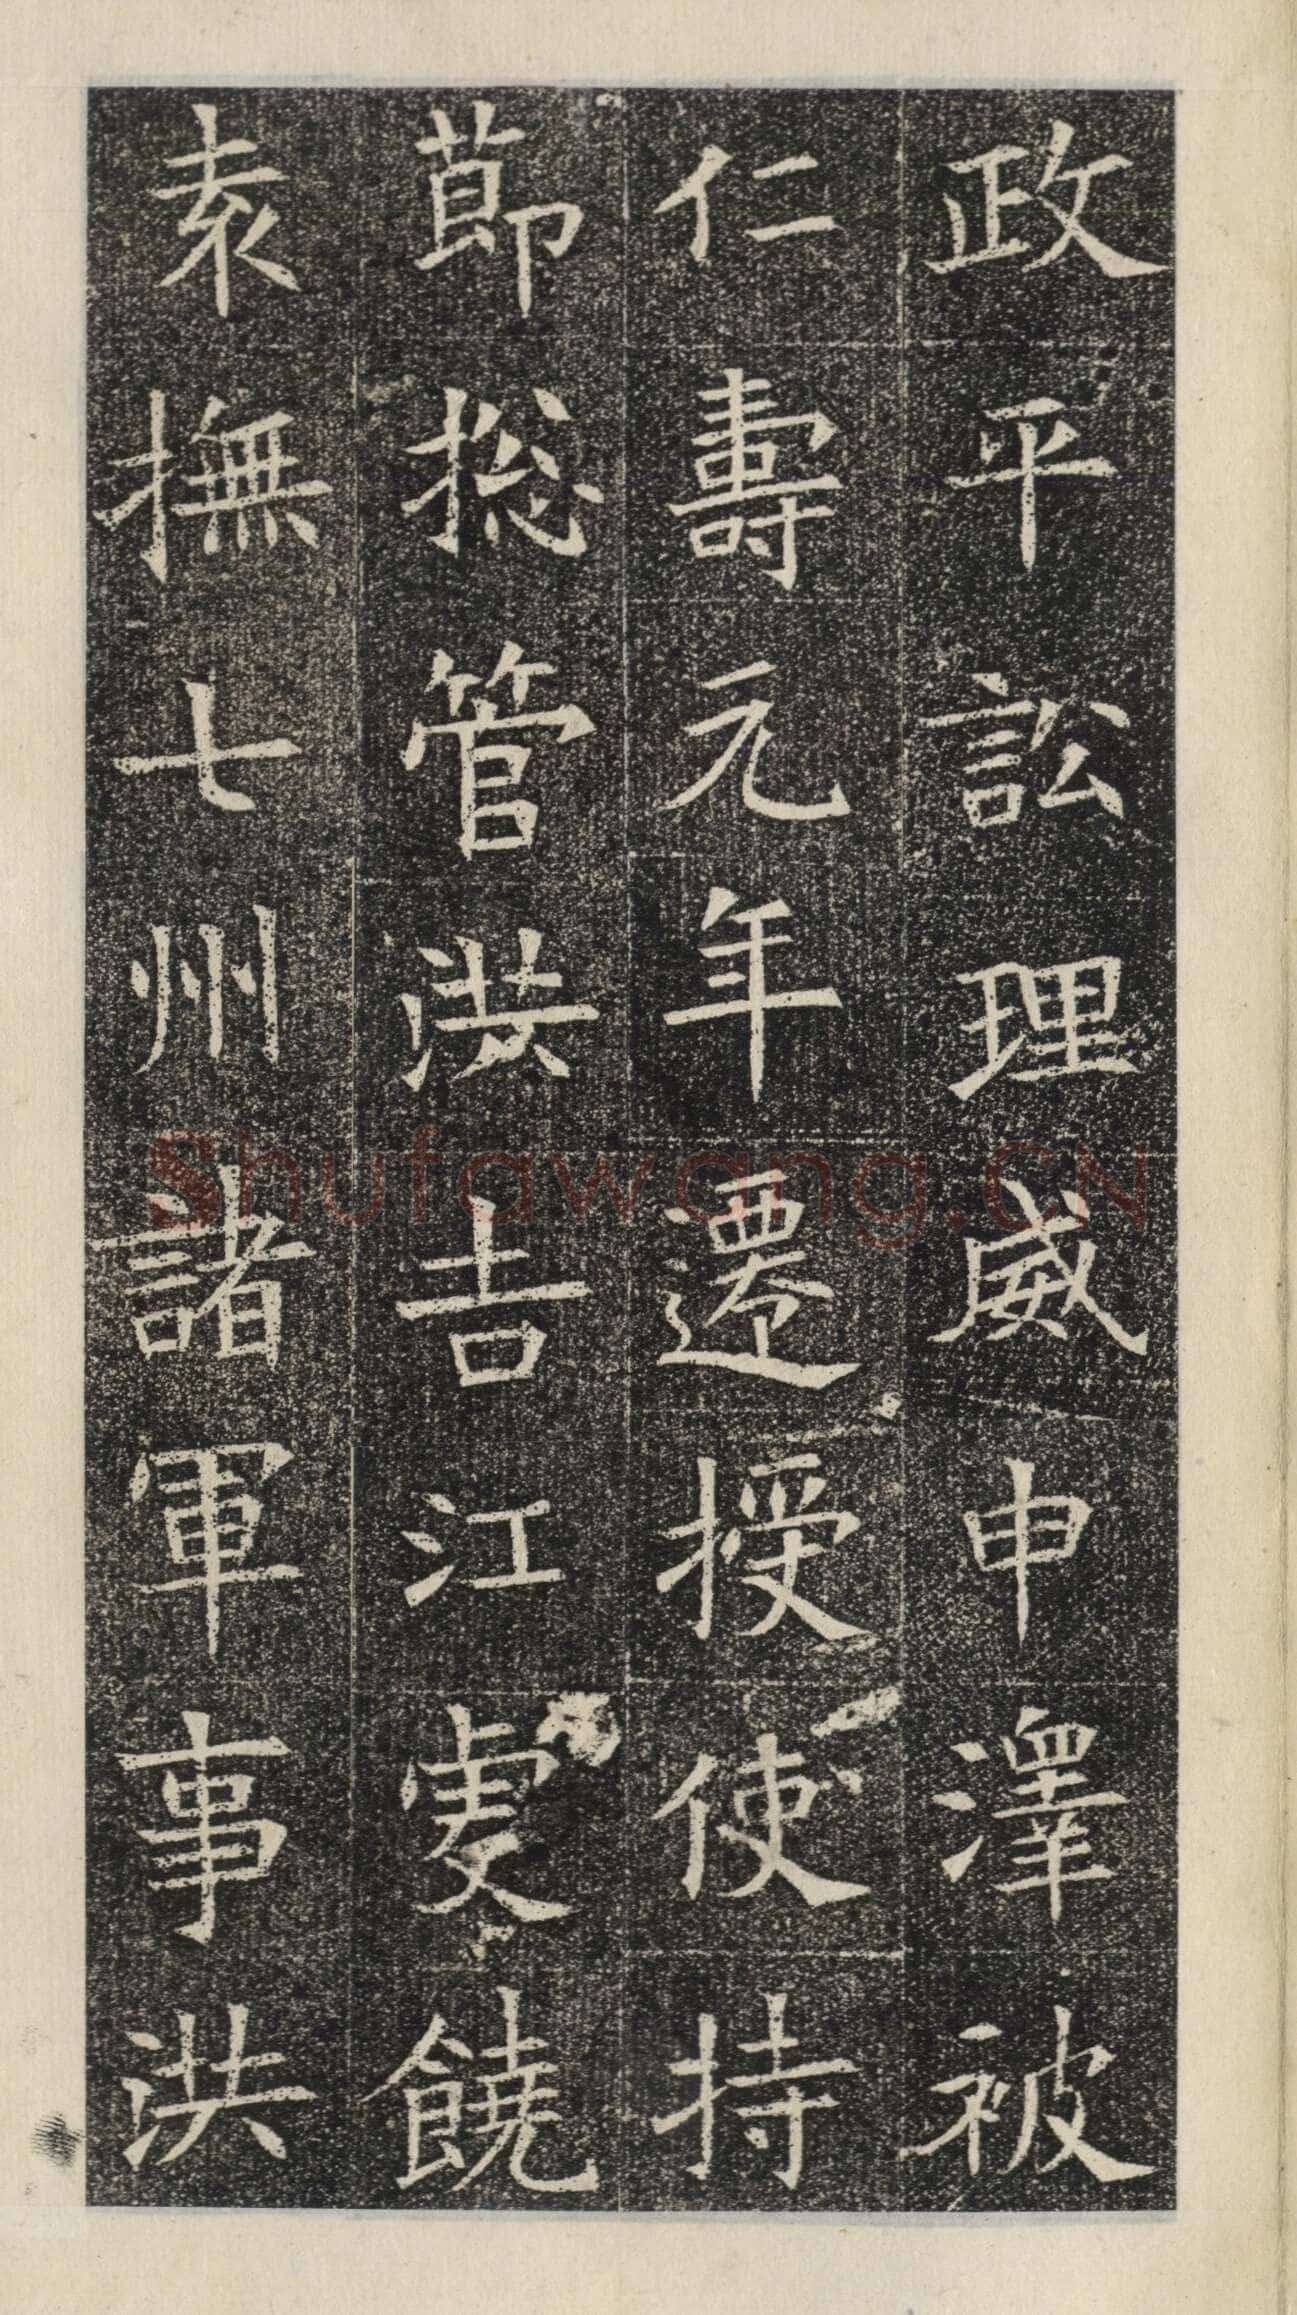 政平訟理威申澤被
仁壽元年遷授使持
節揔管洪吉江虔饒
袁撫七州諸軍事洪
Shufawang.CN